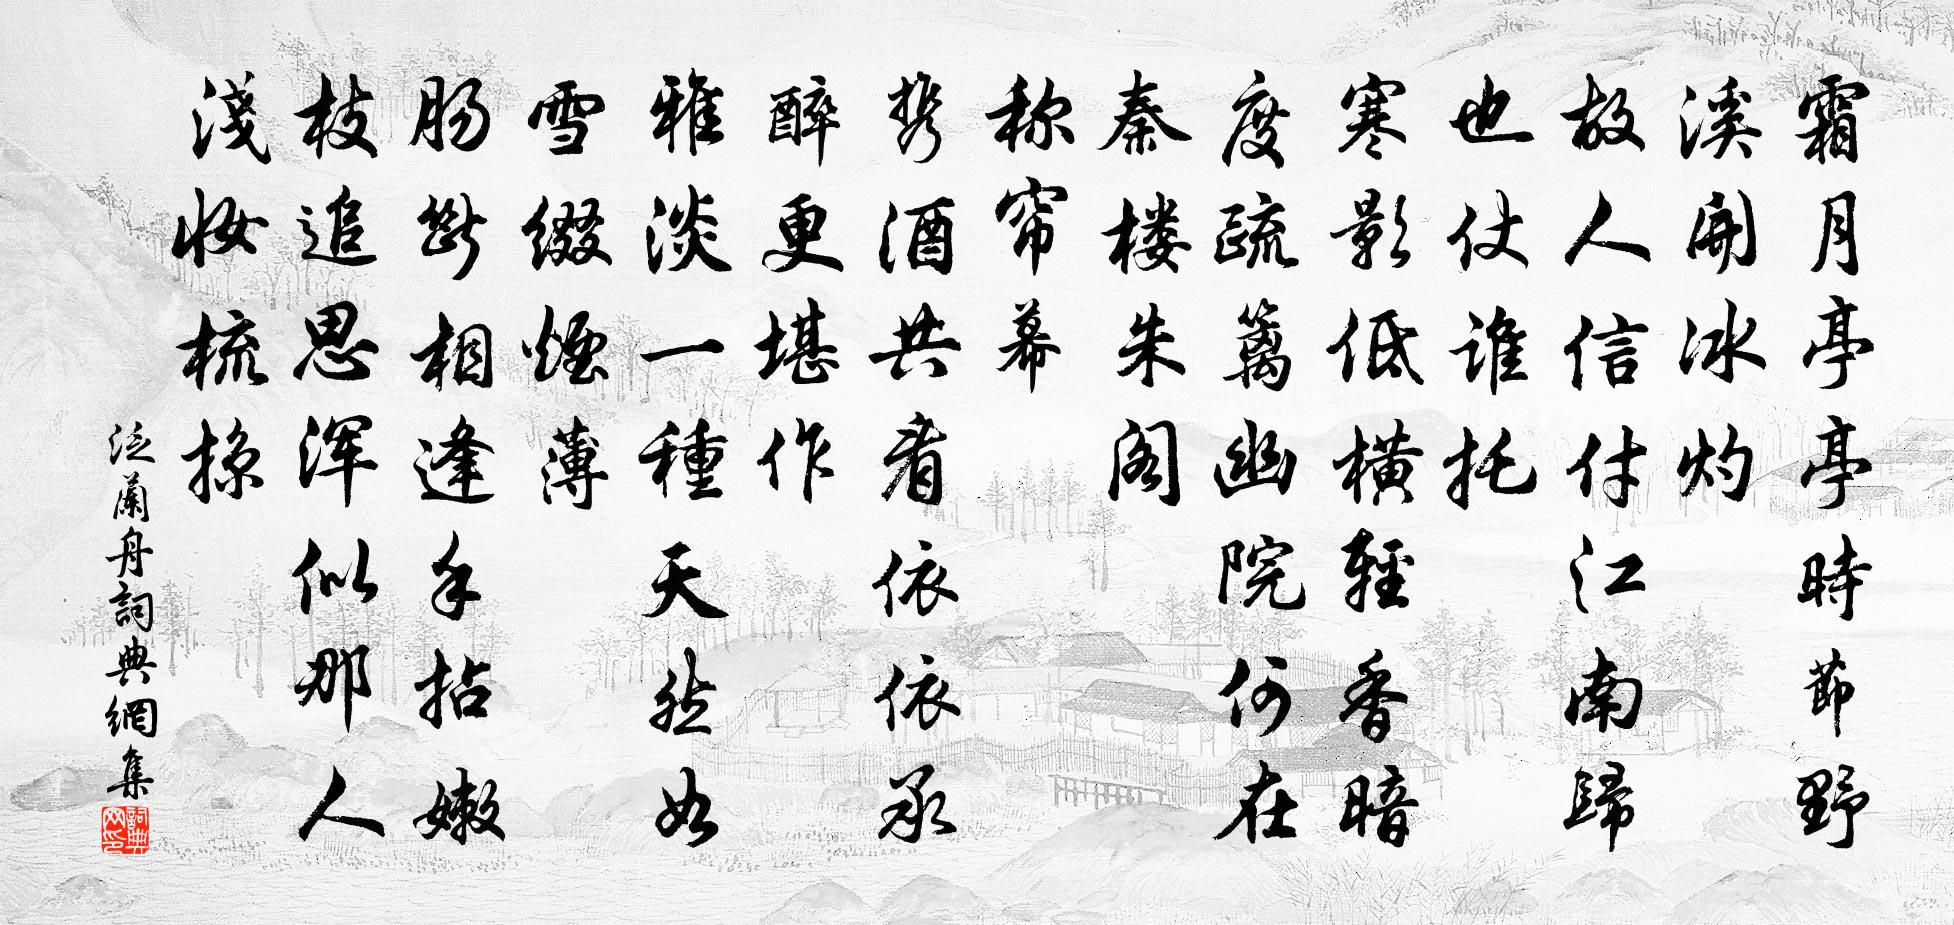 霜月亭亭時節野
溪開冰灼
故人信付江南歸
也仗谁托
寒影低横輕香暗
度疏篱幽院何在
秦楼朱阁
称帘幕
携酒共看依依承
醉更堪作
雅淡一種天然如
雪缀煙薄
肠断相逢手拈嫩
枝追思浑似那人
淺妆梳掠
泛蘭舟詞典網集
詞典网印